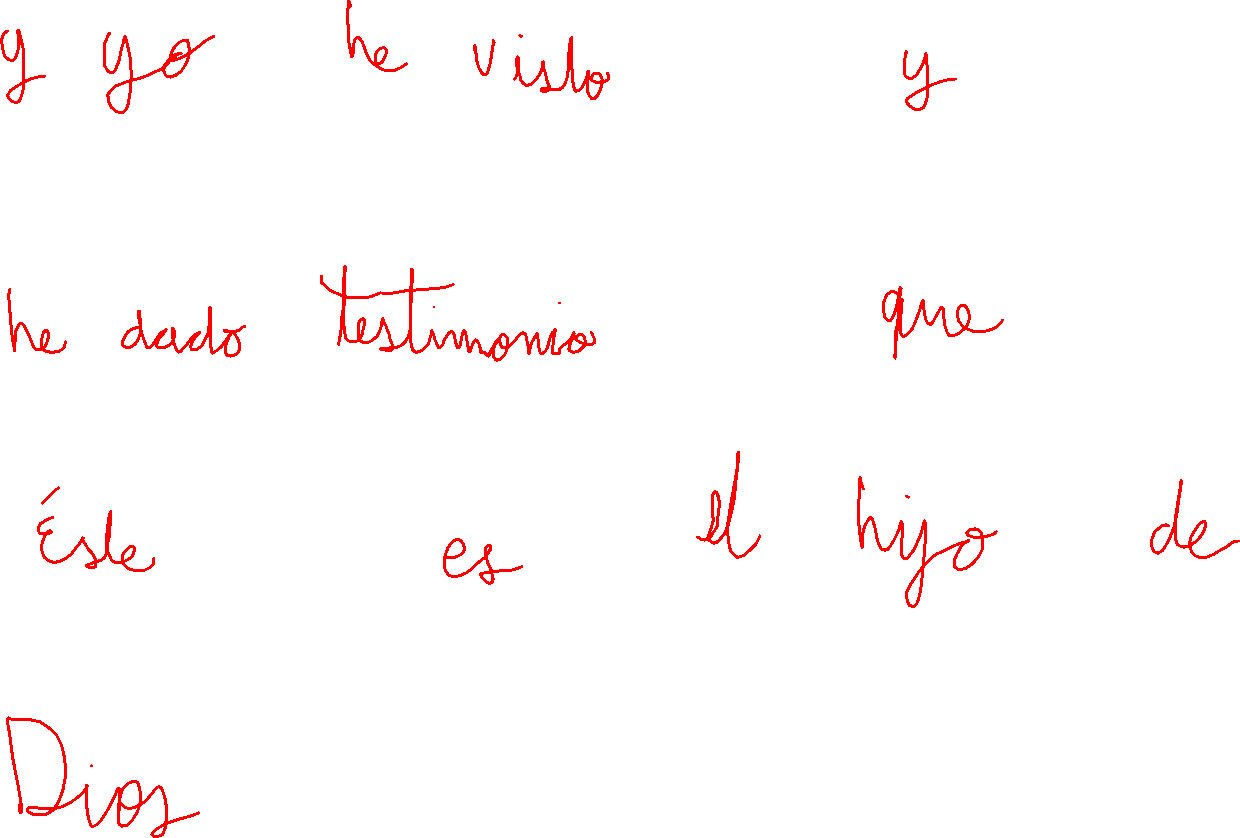 y yo he visto y
he dado testimonio que
Éste es el hijo de
Dios